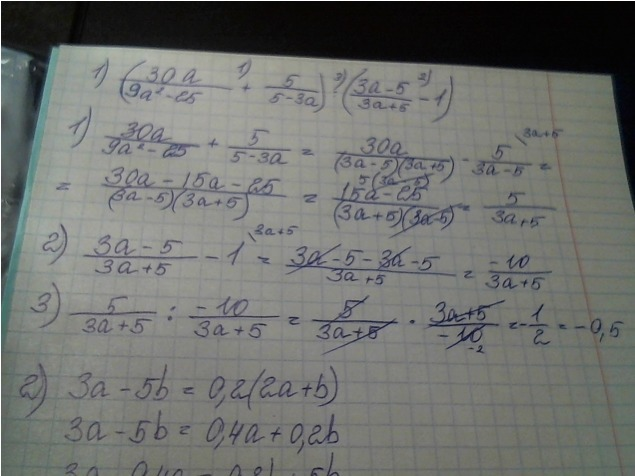 1) (30a/(9a²-25) + 5/(5-3a)) : ((3a-5)/(3a+5) - 1)
1) 30a/(9a²-25) + 5/(5-3a) = 30a/((3a-5)(3a+5)) - 5/(3a-5) \3a+5 =
= (30a-15a-25)/((3a-5)(3a+5)) = 5(3a-5) (15a-25)/((3a+5)(3a-5)) = 5/(3a+5)
2) (3a-5)/(3a+5) - 1 \3a+5 = (3a-5-3a-5)/(3a+5) = -10/(3a+5)
3) 5/(3a+5) : -10/(3a+5) = 5/(3a+5) · (3a+5)/-10 -2 = -1/2 = -0,5
2) 3a-5b = 0,2(2a+b)
3a-5b = 0,4a+0,2b